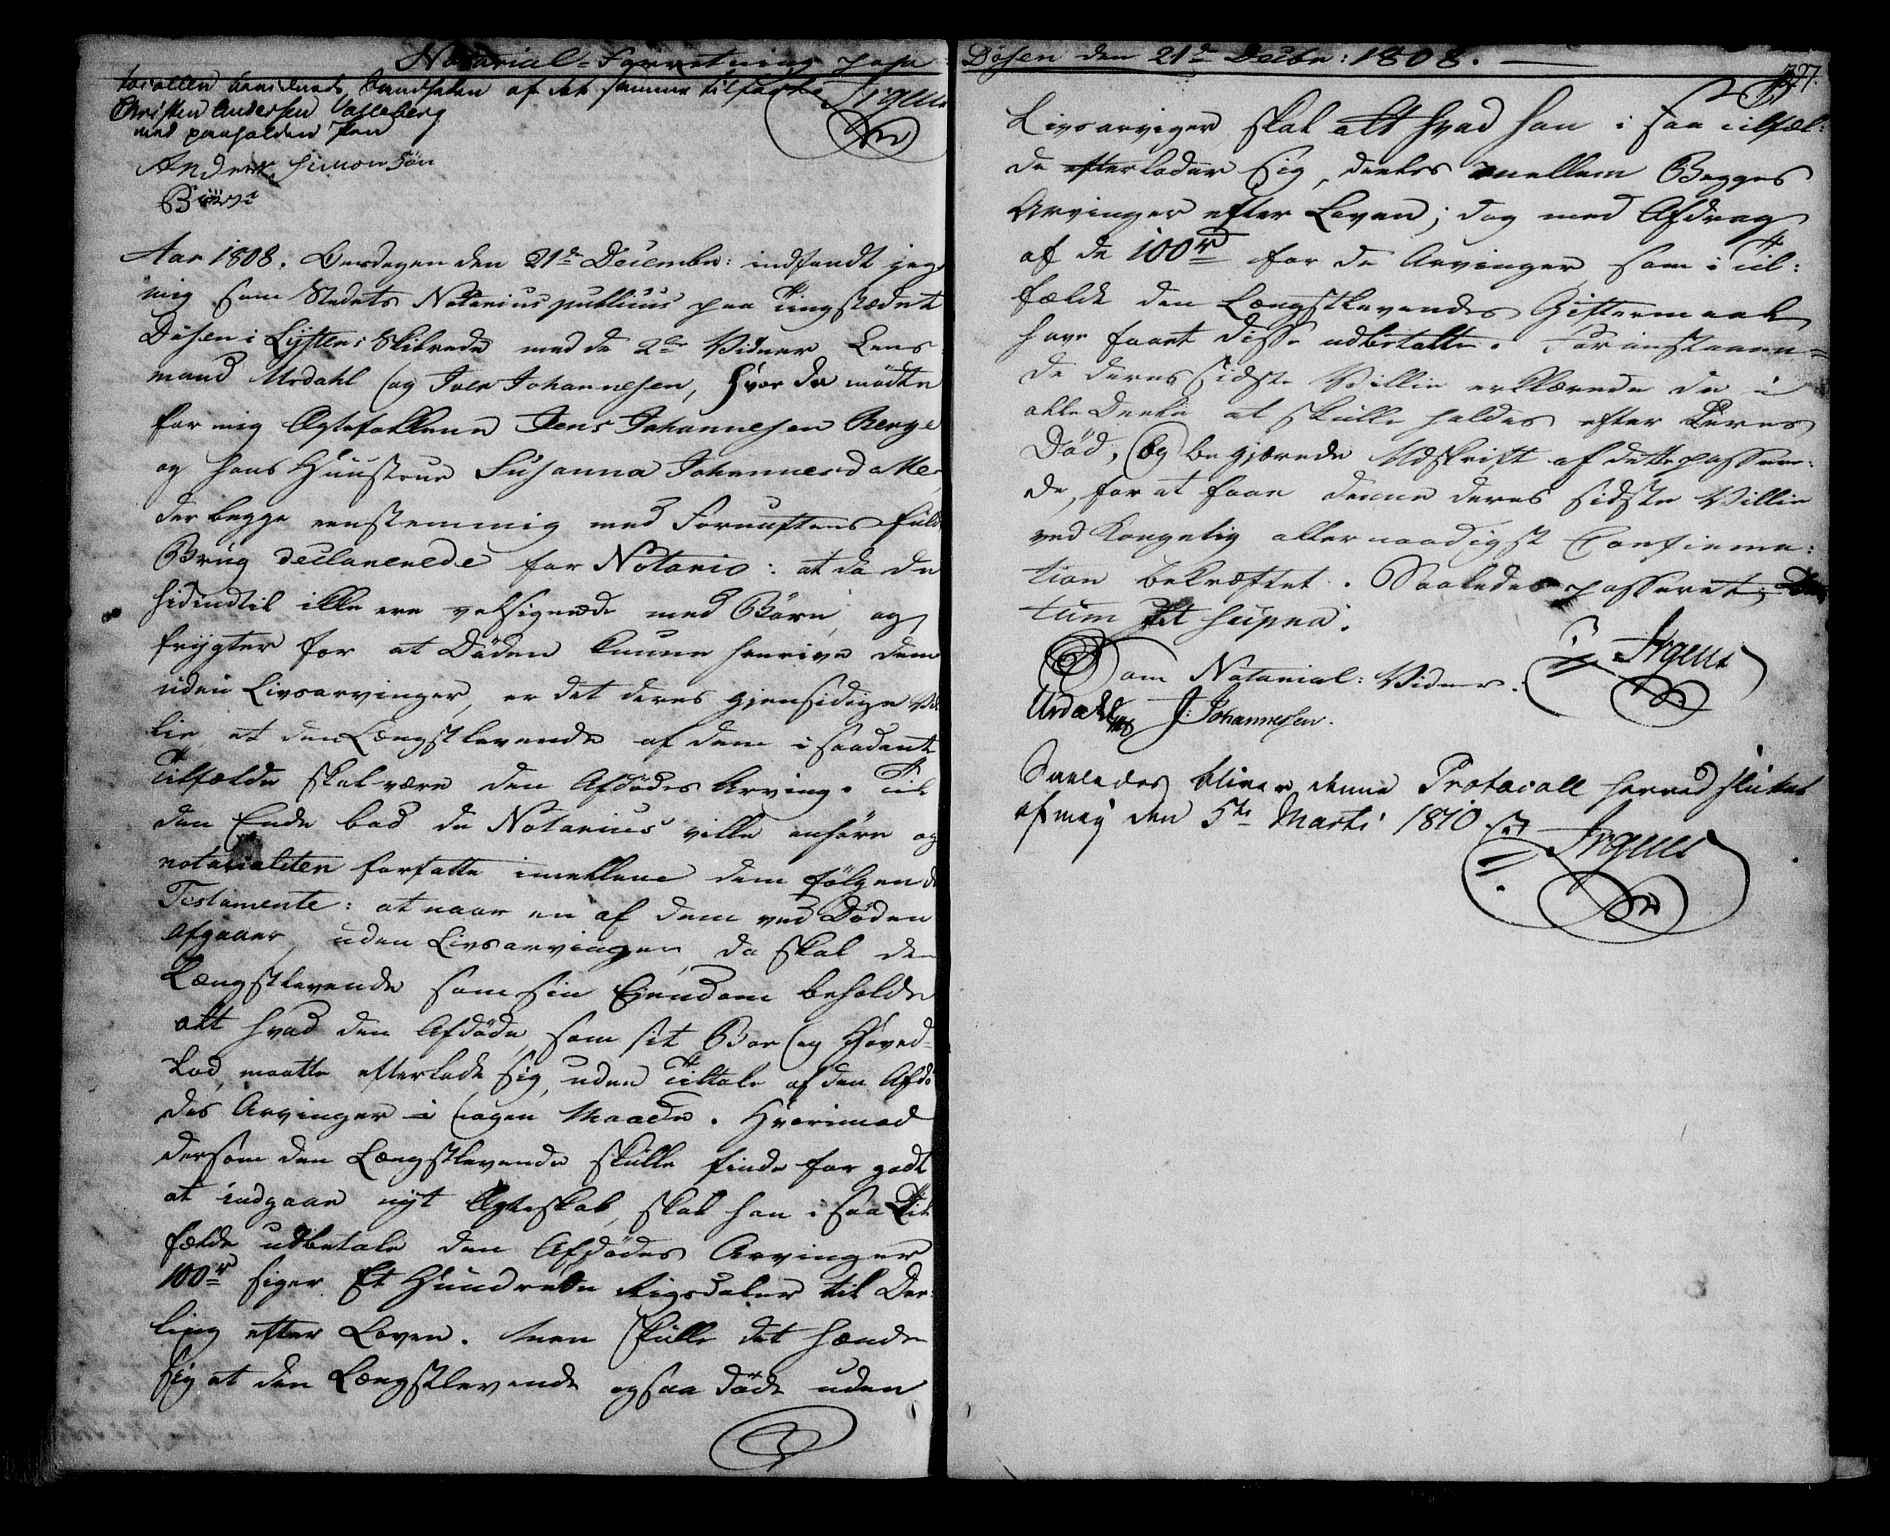 Notarial-Forretning paa
af det samme tilførte
Christen Andersen Valleberg
med paaholden Pen
Anders Simonsøn
Aar 1808. Onsdagen den 21de Decembr: indfandt jeg
mig som Stedets Notarius publicus paa Tingstædet
Døsen i Lyster Skibrede med de 2de Vidner Lens-
mand Urdahl og Iver Johannesen, hvor da mødte
for mig Ægtefolkene Jens Johannesen Berge
og hans Huustrue Susanna Johannesd
der begge eenstemmig med Fornuftens fuld
Brug declarerede for Notario: at da de
hidindtil ikke ere velsignede med Børn og
frygter for at Døden kunne henrive dem
uden Livsarvinger, er det deres gjensidige Vil
lie, at den Længstlevende af dem i saadant
Tilfælde skal være den Afdødes Arving. Til
den Ende bad de Notarius ville anhøre og
notarialiter forfatte imellem dem følgende
Testamente: at naar en af dem ved Døden
afgaaer, uden Livsarvinger, da skal den
Længstlevende som sin Eiendom beholde
alt hvad den Afdøde, som sit Boe og Hoved-
lod, maatte efterlade sig, uden Tiltale af den Afdø
des Arvinger i nogen Maade. Hvorimod
dersom den Længstlevende skulle finde for godt
at indgaae nyt Ægteskab, skal han i saa Til
fælde udbetale den Afdødes Arvinger
100rd siger Et Hundrede Rigsdaler til De-
ling efter Loven. Men skulle det hænde
sig at den Længstlevende ogsaa døde uden
Døsen den 21de Decbr: 1808.
327.
Livsarvinger, skal alt hvad han i saa Tilfæl:
de efterlader sig, deeles mellem Begges
Arvinger efter Loven; dog med Afdrag
af de 100rd for de Arvinger som i Til:
fælde den Længstlevendes Giftermaal
have faaet disse udbetalte. Foranstaaen=
de deres sidste Villie erklærede de i
alle Deele at skulle holdes efter Deres
Død, og begjærede Udskrift af dette passere:
de, for at faae denne deres sidste Villie
ved Kongelig allernaadigst Confirma:
tion bekræftet. Saaledes passeret, Da
tum ut supra.
Irgens
Som Notarial: Vidner.
Urdahl J: Johannesen.
Saaledes bliver denne Protocoll herved slutet
af mig den 5te Marti 1810.
Irgens